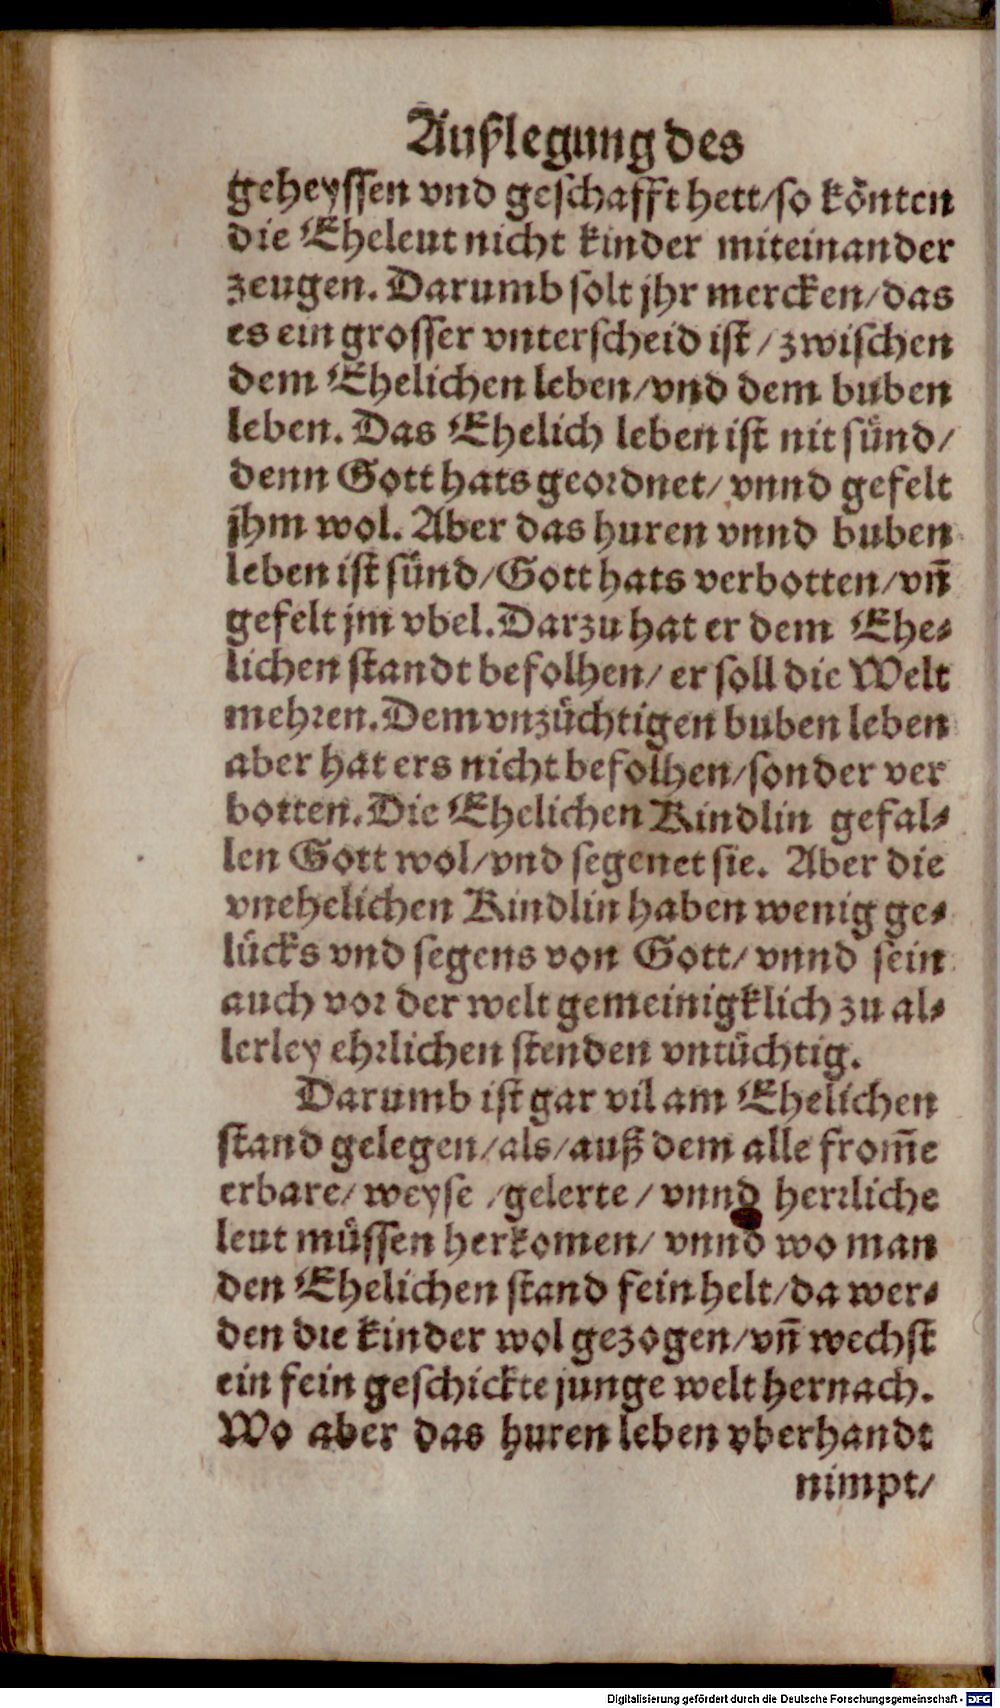 Außlegung des
geheyssen vnd geschafft hett/so könten
die Eheleut nicht kinder miteinander
zeugen. Darumb solt jhr mercken/das
es ein grosser vnterscheid ist/zwischen
dem Ehelichen leben/vnd dem buben
leben. Das Ehelich leben ist nit sünd/
denn Gott hats geordnet/vnnd gefelt
jhm wol. Aber das huren vnnd buben
leben ist sünd/Gott hats verbotten/vñ
gefelt jm vbel. Darzu hat er dem Ehe-
lichen standt befolhen/er soll die Welt
mehren. Dem vnzüchtigen buben leben
aber hat ers nicht befolhen/sonder ver
botten. Die Ehelichen Kindlin gefal-
len Gott wol/vnd segenet sie. Aber die
vnehelichen Kindlin haben wenig ge-
lücks vnd segens von Gott/vnnd sein
auch vor der welt gemeinigklich zu al-
lerley ehrlichen stenden vntüchtig.
Darumb ist gar vil am Ehelichen
stand gelegen/als/auß dem alle from̄e
erbare/weyse/gelerte/vnnd herrliche
leut müssen herkomen/vnnd wo man
den Ehelichen stand fein helt/da wer-
den die kinder wol gezogen/vñ wechst
ein fein geschickte junge welt hernach.
Wo aber das huren leben vberhandt
nimpt/
Digitalisierung gefördert durch die Deutsche Forschungsgemeinschaft - DFG